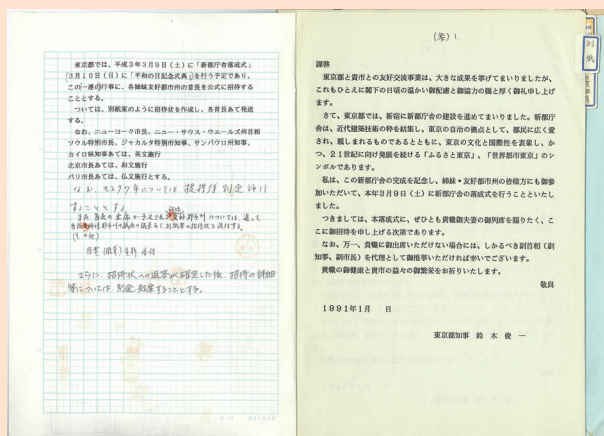 東京都では、平成3年3月9日(土)に「新都庁舎落成式」
(3月10日(日)に「平和の日記念式典」)を行う予定であり、
この(一連の)行事に、各姉妹友好都市州の首長を公式に招待する
こととする。
ついては、別紙案のように招待状を作成し、各首長あて発送
する。
なお、ニューヨーク市長、ニュー・サウス・ウエールズ州首相
ソウル特別市長、ジャカルタ特別市知事、サンパウロ州知事、
カイロ県知事あては、英文施行
北京市長あては、和文施行
パリ市長あては、仏文施行とする。
なお、モスクワ市については 提携後 別途 施行
することとする。
さらに、招待状への返答が確定した後、招待の詳細
等については 別途起案することとする。
(案)1
別紙
謹啓
東京都と貴市との友好交流事業は、大きな成果を挙げてまいりましたが、
これもひとえに閣下の日頃の温かい御配慮と御協力の賜と厚く御礼申し上げ
ます。
さて、東京都では、新宿に新都庁舎の建設を進めてまいりました。新都庁
舎は、近代建築技術の粋を結集し、東京の自治の拠点として、都民に広く愛
され、親しまれるものであるとともに、東京の文化と国際性を表象し、か
つ、21世紀に向け発展を続ける「ふるさと東京」、「世界都市東京」のシ
ンボルであります。
私は、この新都庁舎の完成を記念し、姉妹・友好都市州の皆様方にも御参
加いただいて、本年3月9日(土)に新都庁舎の落成式を行うことといたし
ました。
つきましては、本落成式に、ぜひとも貴職御夫妻の御列席を賜りたく、こ
こに御招待を申し上げる次第であります。
なお、万一、貴職に御出席いただけない場合には、しかるべき副首相(副
知事、副市長)を代理として御推挙いただければ幸いでございます。
貴職の御健康と貴市の益々の御繁栄をお祈りいたします。
敬具
1991年1月 日
東京都知事 鈴木俊一